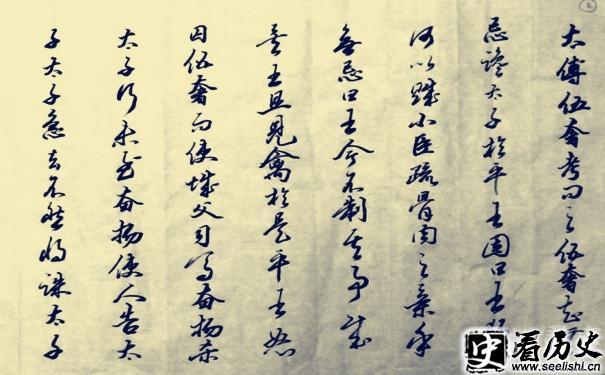 太傅伍奢考问之伍奢知
忌讒太子於平王因曰王
何以賊小臣疏骨肉之親乎
無忌曰王今不制其事成
矣王且見禽於是平王怒
囚伍奢而使城父司馬奮揚
太子行未至奮揚使人告太
子太子急去不然將誅太子
史 看历史
www.seelishi.cn